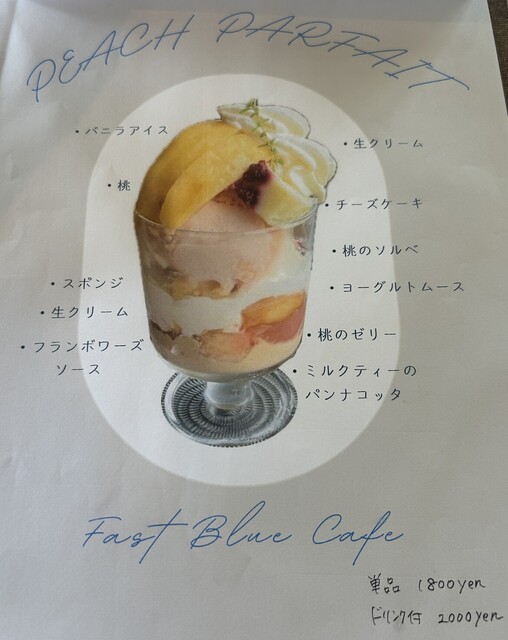 PEACH PARFAIT
・バニラアイス
・桃
・スポンジ
・生クリーム
・フランボワーズ
ソース
・生クリーム
・チーズケーキ
・桃のソルベ
・ヨーグルトムース
・桃のゼリー
・ミルクティーの
パンナコッタ
Fast Blue Cafe
単品 1800yen
ドリンク付 2000yen